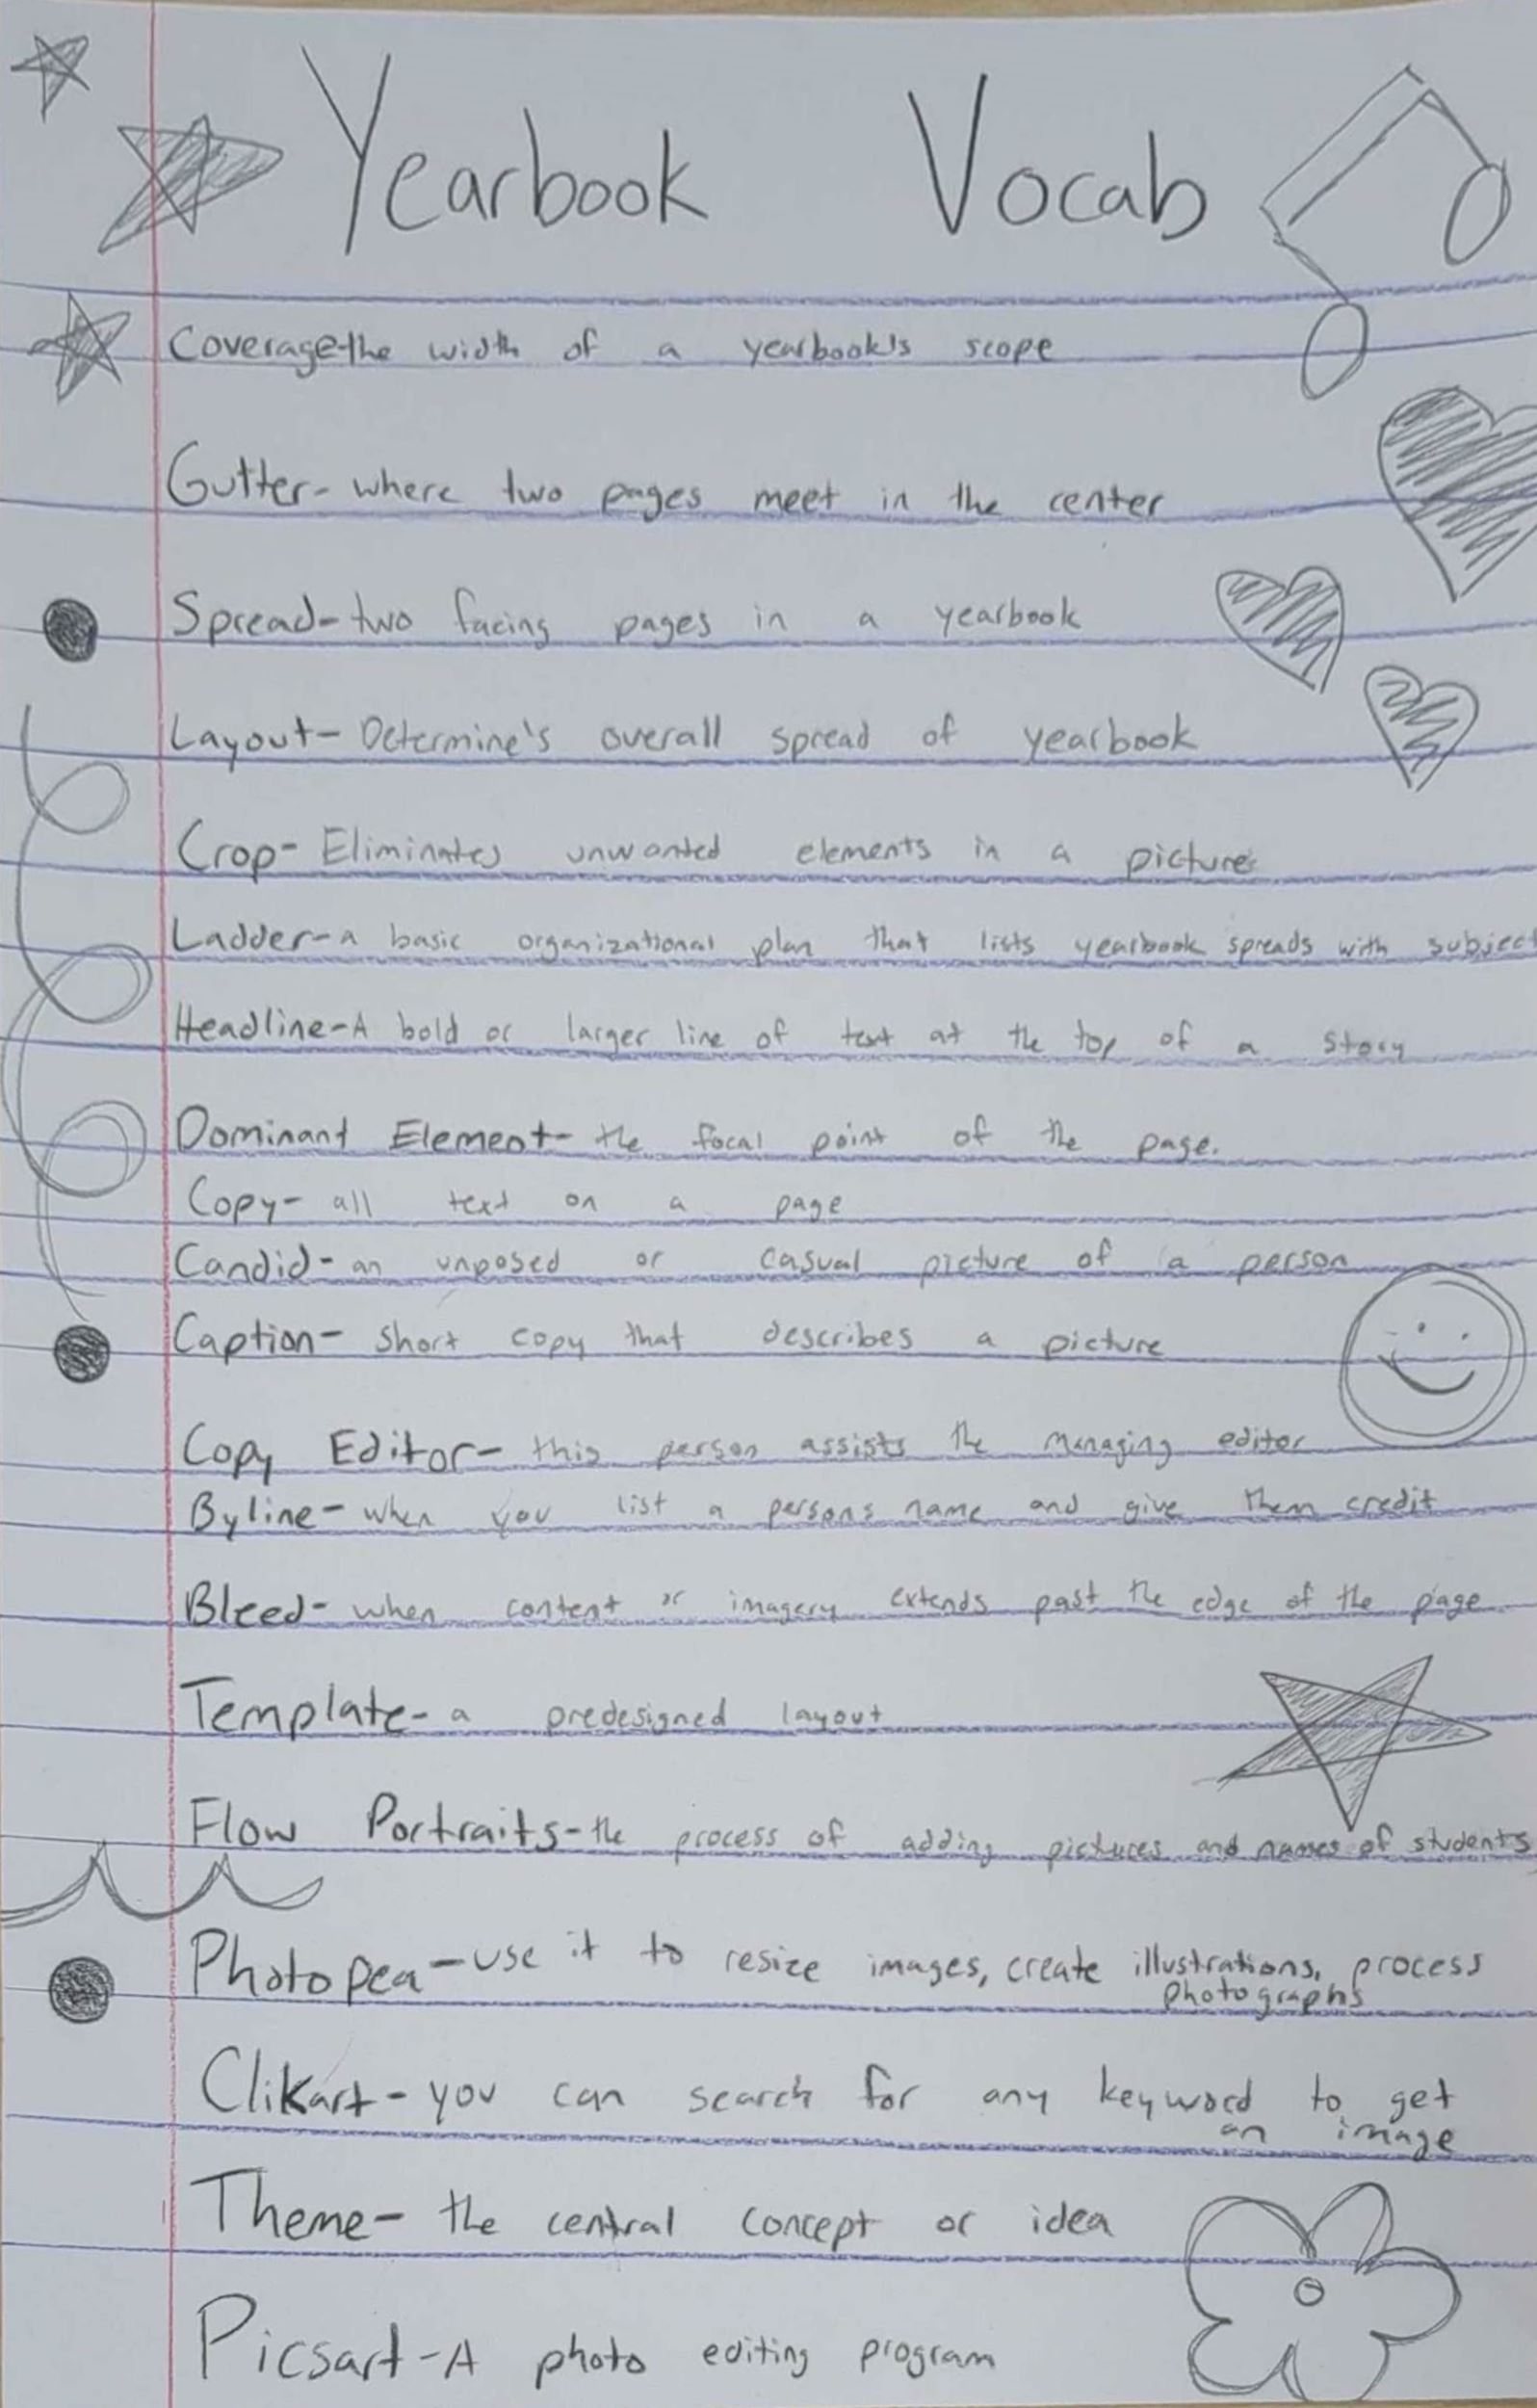 Yearbook Vocab
Coverage-the width of a yearbook's scope
Gutter- where two pages meet in the center
Spread- two facing pages in a yearbook
Layout- Determine's overall spread of yearbook
Crop- Eliminates unwanted elements in a picture
Ladder- a basic organizational plan that lists yearbook spreads with subject
Headline- A bold or larger line of text at the top of a story
Dominant Element- the focal point of the page.
Copy- all text on a page
Candid- an unposed or casual picture of a person
Caption- short copy that describes a picture
Copy Editor- this person assists the managing editor
Byline- when you list a persons name and give them credit
Bleed- when content or imagery extends past the edge of the page
Template- a predesigned layout
Flow Portraits- the process of adding pictures and names of students
Photopea- use it to resize images, create illustrations, process
photographs
Clikart- you can search for any keyword to get
an image
Theme- the central concept or idea
Picsart- A photo editing program